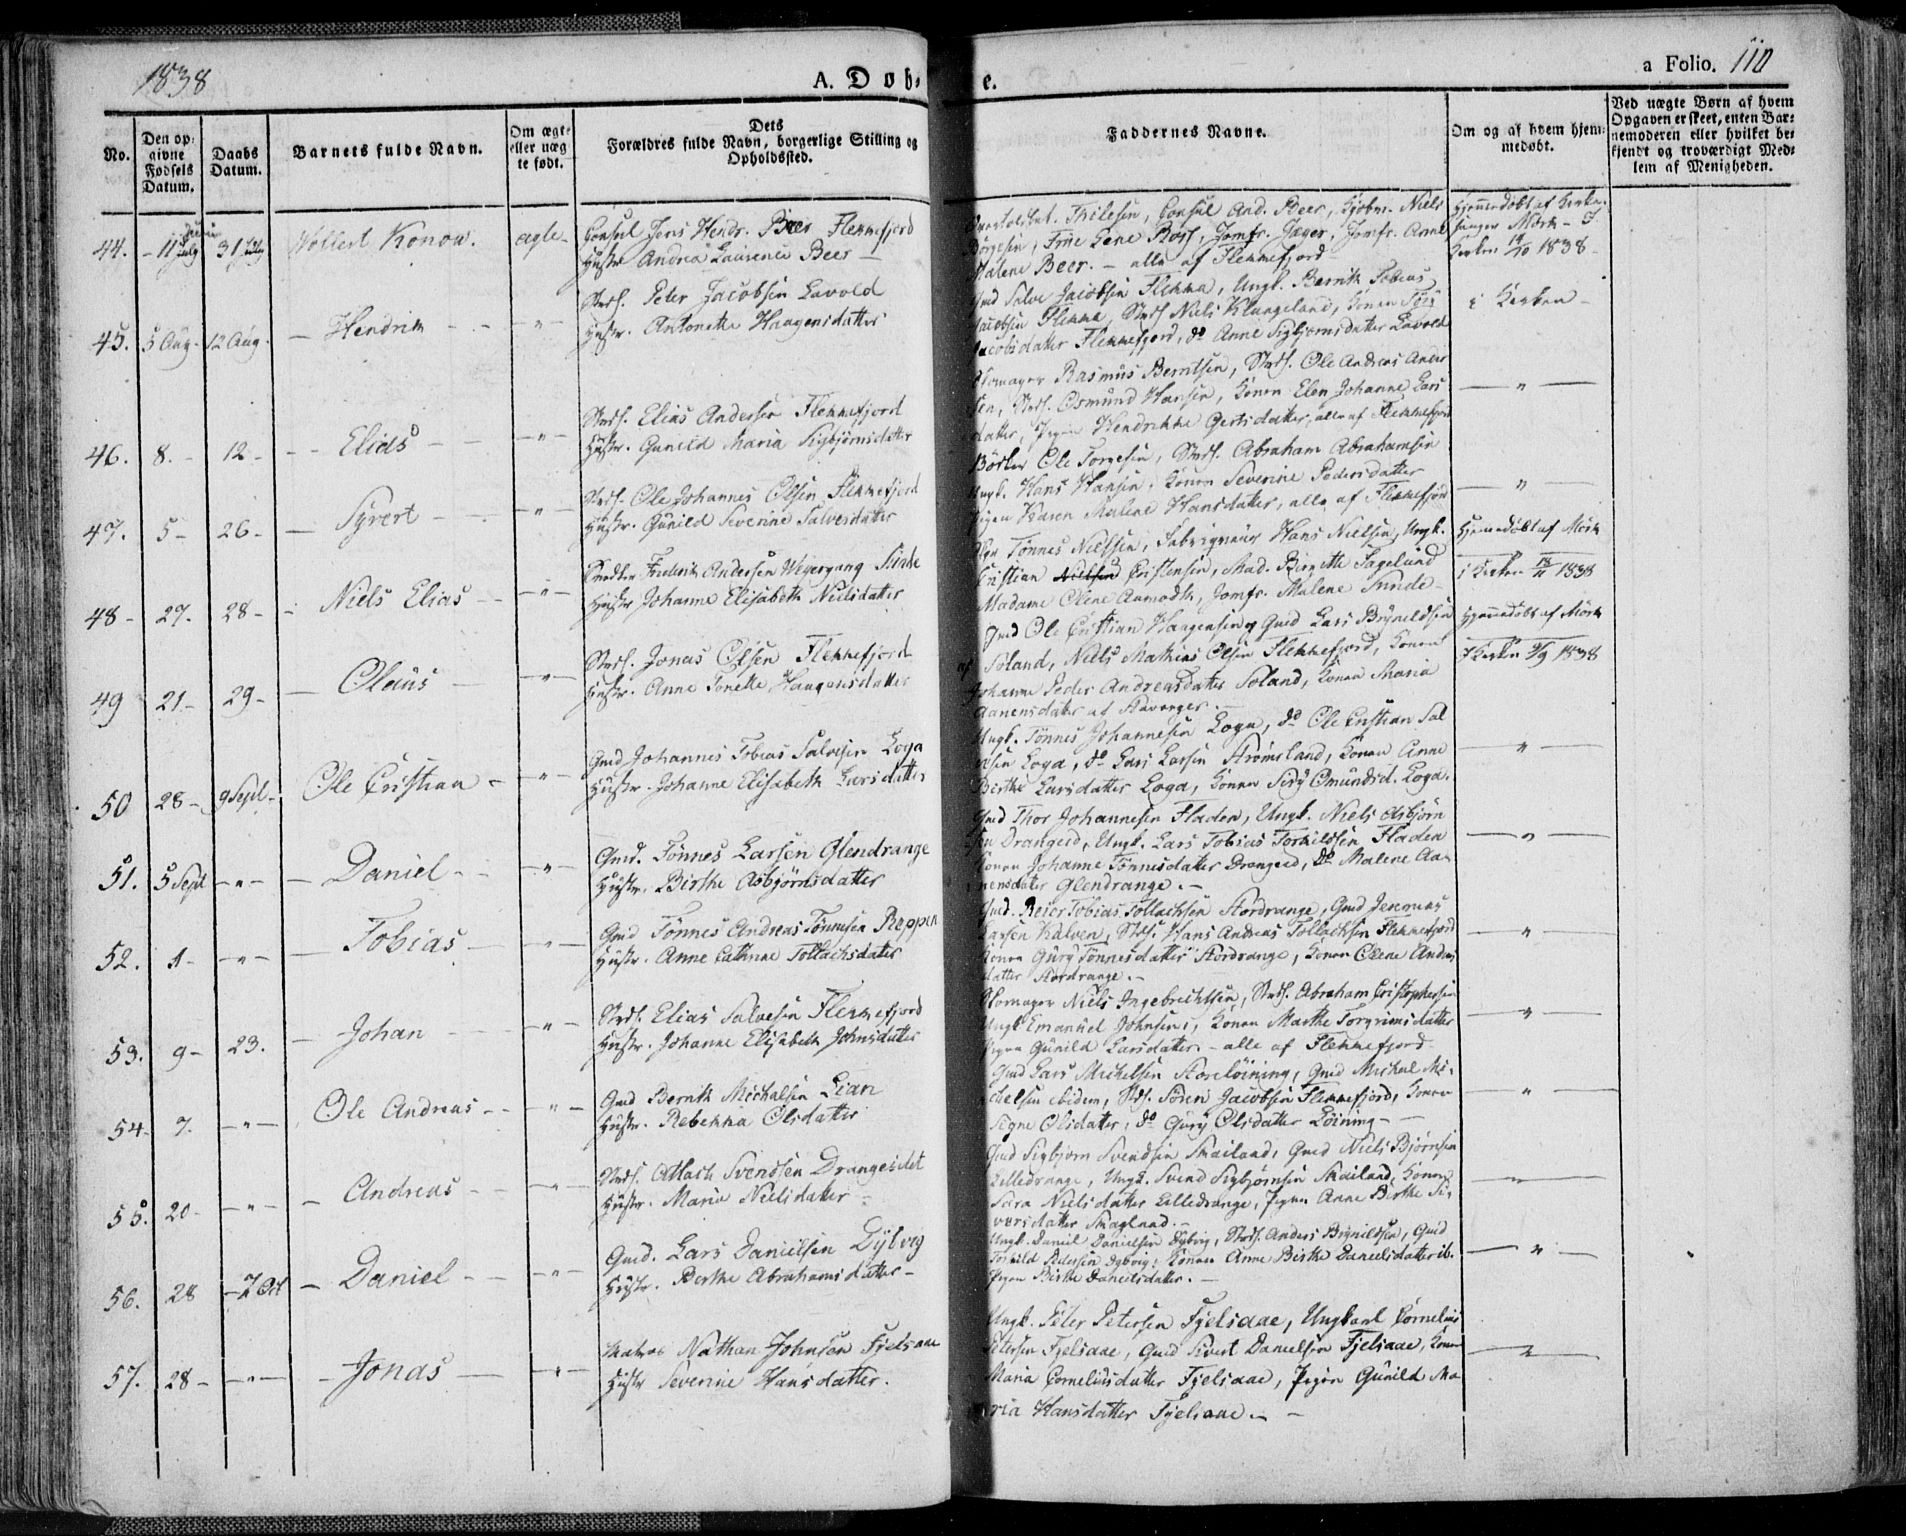 1838
A. Døb-
e.
a Folio. 110
No.
Den op-
givne
Fødsels
Datum.
Daabs
Datum.
Barnets fulde Navn.
Om ægte
eller uæg
te født.
Dets
Forældres fulde Navn, borgerlige Stilling og
Opholdssted.
Faddernes Navne.
Om og af hvem hjem-
medøbt.
Ved uægte Børn af hvem
Opgaven er skeet, enten Bar-
nemoderen eller hvilket be-
kjendt og troværdigt Med-
lem af Menigheden.
44. 11 31 July Wollert Konow. ægte
Consul Jens Hendr. Beer Flekkefjord
Hustr. Andrea Laurence Beer
Thilesen, Consul And. Beer, Kjøbm. Niels
Børgesen, Frue Lene Ross, Jomfr. Jæger, Jomfr. Anne
Malene Beer. - alle af Flekkefjord
Hjemmedøbt af Kirke-
sanger Mörk - I
Kirken 14/10 1838
45. 5 Aug. 12 Aug. Hendrik
Strds. Peter Jacobsen Lavold
Hustr. Antonette Haagensdatter
Gmd Salve Jacobsen Flikka, Ungk. Bernth Tobias
Jacobsen Flikka, Strds Niels Klungeland, Konen Siri
Jacobsdatter Flekkefjord, do Anne Sigbjørnsdatter Lavold
i Kirken
46. 8. 12 Elias
Strds. Elias Andersen Flekkefjord
Hustr. Gunild Maria Sigbjørnsdatter
Skomager Rasmus Berntsen, Strds. Ole Andreas Ander
sen, Strds. Osmund Hansen, Konen Elen Johanne Lars
datter, Pigen Hendrikke Gertsdatter, alle af Flekkefjord
47. 5 26 Syvert
Strds. Ole Johannes Olsen Flekkefjord
Hustr. Gunild Severine Salvesdatter
Bödker Ole Torgesen, Strds. Abraham Abrahamsen
Ungk. Hans Hansen, Konen Severine Pedersdatter
Pigen Karen Malene Hansdatter, alle af Flekkefjord
48 27. 28 Niels Elias
Frederik Andersen Weyergang Sunde
Hustr Johanne Elisabeth Nielsdatter
Tønnes Nielssen, Hans Nielsen, Ungk.
Cristian Nielsen Cristensen, Mad. Birgitte Fagelund
Madame Olene Aamodt, Jomfr. Malene Sunde
Hjemmedøbt af Mörk
i Kirken 1838
49 21 29 Olaus
Strds. Jonas Olsen Flekkefjord
Hustr. Anne Tonette Haagensdatter
Gmd Ole Cristian Haagensen og Gmd Lars Brynildsen
Soland, Niels Mathias Olsen Flekkefjord, Konen
Johanne Peder Andreasdatter Soland, Konen Maria
Aanensdatter af Stavanger.
Hjemmedøbt af Mörk
I Kirken 1838
50 28 9 Sept. Ole Cristian
Gmd Johannes Tobias Salvesen Loga
Hustr. Johanne Elisabeth Larsdatter
Ungk. Tønnes Johannesen Loga, do Ole Cristian Sal
vesen Loga, do Lars Larsen Strømsland, Konen Anne
Birthe Larsdatter Loga, Konen Siry Omundsd. Loga.
51. 5 Sept Daniel
Gmd. Tönnes Larsen Glendrange
Hustr. Birthe Asbjörnsdatter
Gmd Thor Johannesen Fladen, Ungk. Niels Asbjörn
sen Drangeid, Ungk. Lars Tobias Torkildsen Fladen
Konen Johanne Tönnesdatter Drangeid, do Malene Aa-
nensdatter Glendrange.
52. 1 Tobias
Gmd Tønnes Andreas Tønnesen Reppen
Hustr. Anne Cathrine Tollachsdatter
Gmd. Reier Tobias Tollachsen Stordrange, Gmd Jeremias
Larsen Kalven, Strds. Hans Andreas Tollachsen Flekkefjord
Konen Gury Tønnesdatter Stordrange, Konen Olene Andreas
datter Stordrange.
53. 9 23. Johan
Strds. Elias Salvesen Flekkefjord
Hustr. Johanne Elisabeth Johnsdatter
Skomager Niels Ingebrechtsen, Strds. Abraham Cristophersen
Ungk Emanuel Johnsen, Konen Marthe Torgrimsdatter
Pigen Gunild Larsdatter - alle af Flekkefjord
54 7. Ole Andreas
Gmd Bernth Michelsen Lian
Hustr. Rebekka Olsdatter
Gmd Lars Michelsen Storeløining, Gmd Mickel Mi-
chelsen ibidem, Strds. Sören Jacobsen Flekkefjord, Konen
Signe Olsdatter, do Gury Olsdatter Löining
55. 20 Andreas
Strds. Atlach Svendsen Drangeidet
Hustr. Marie Nielsdatter
Gmd Sigbjørn Svendsen Skailand, Gmd Niels Bjørnsen
Lilledrange, Ungk. Svend Sigbjørnsen Skailand, Konen
Sara Nielsdatter Lilledrange, Pigen Anne Birthe Si-
versdatter
56. 28 7 Oct Daniel
Gmd. Lars Danielsen Dybvig
Hustr. Berthe Abrahamsdatter
Ungk. Daniel Danielsen Dybvig, Strds. Anders Brynildsen, Gmd
Torkild Pedersen Dybvig, Konen Anne Birthe Danielsdatter ib.
Pigen Birthe Danielsdatter.
57. 28 Jonas
Matros Nathan Johnsen Fjelsaae
Hustr Severine Hansdatter.
Ungk. Peter Petersen Fjelsaae, Ungkarl Cornelius
Petersen Fjelsaae, Gmd Sivert Danielsen Fjelsaae, Konen
Maria Corneliusdatter Fjelsaae, Pigen Gunild Ma
ria Hansdatter Fjelsaae.